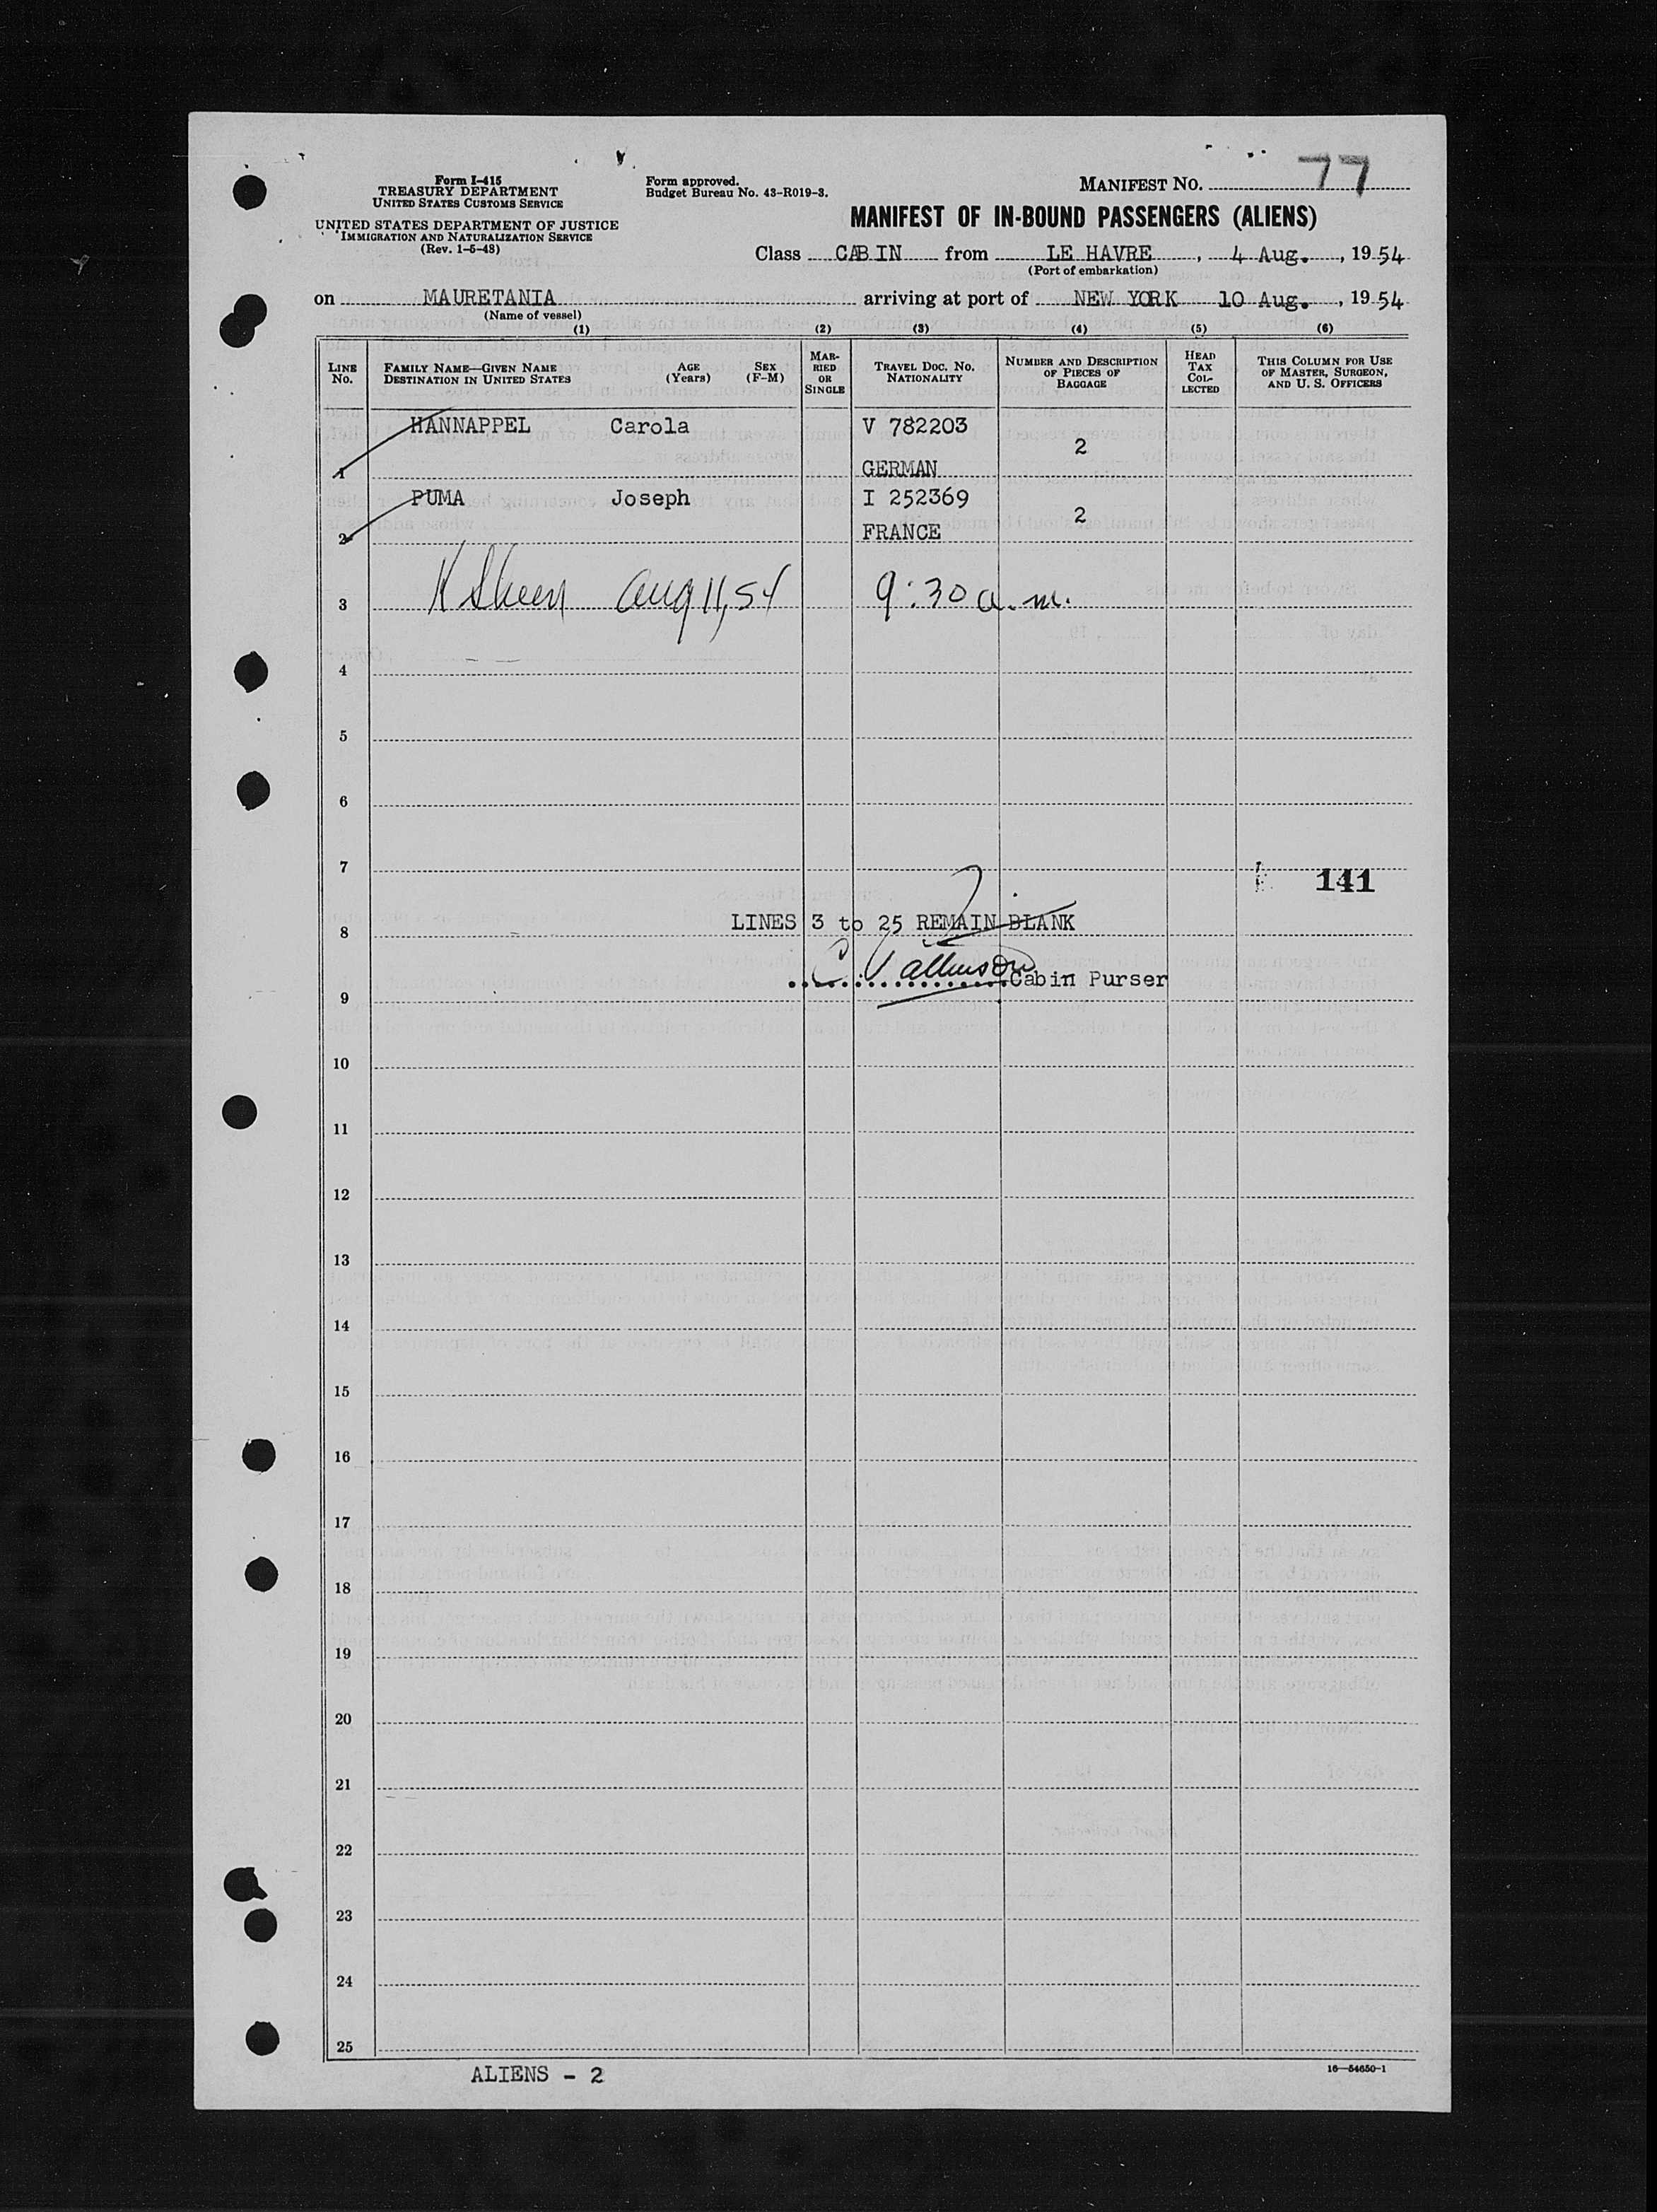 Form I-415
TREASURY DEPARTMENT
UNITED STATES CUSTOMS SERVICE
UNITED STATES DEPARTMENT OF JUSTICE
IMMIGRATION AND NATURALIZATION SERVICE
(Rev. 1-5-48)
Form approved.
Budget Bureau No. 43-R019-3.
MANIFEST NO. 77
MANIFEST OF IN-BOUND PASSENGERS (ALIENS)
Class CABIN from LE HAVRE, 4 Aug., 1954
(Port of embarkation)
on MAURETANIA arriving at port of NEW YORK 10 Aug., 1954
(Name of vessel)
(1) (2) (3) (4) (5) (6)
LINE No.
FAMILY NAME—GIVEN NAME
DESTINATION IN UNITED STATES
AGE (Years)
SEX (F-M)
MARRIED OR SINGLE
TRAVEL DOC. NO. NATIONALITY
NUMBER AND DESCRIPTION OF PIECES OF BAGGAGE
HEAD TAX COLLECTED
THIS COLUMN FOR USE OF MASTER, SURGEON, AND U. S. OFFICERS
HANNAPPEL Carola V 782203
2
1 GERMAN
PUMA Joseph I 252369
2
2 FRANCE
3 Aug 11, 54 9:30 a.m.
4
5
6
7
141
LINES 3 to 25 REMAIN BLANK
8
Cabin Purser
9
10
11
12
13
14
15
16
17
18
19
20
21
22
23
24
25
ALIENS - 2
16—54650-1